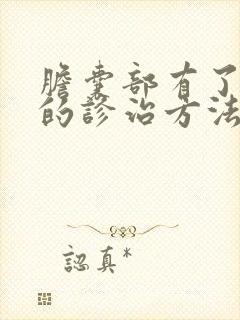 膽囊部有了
的診治方法
認真*